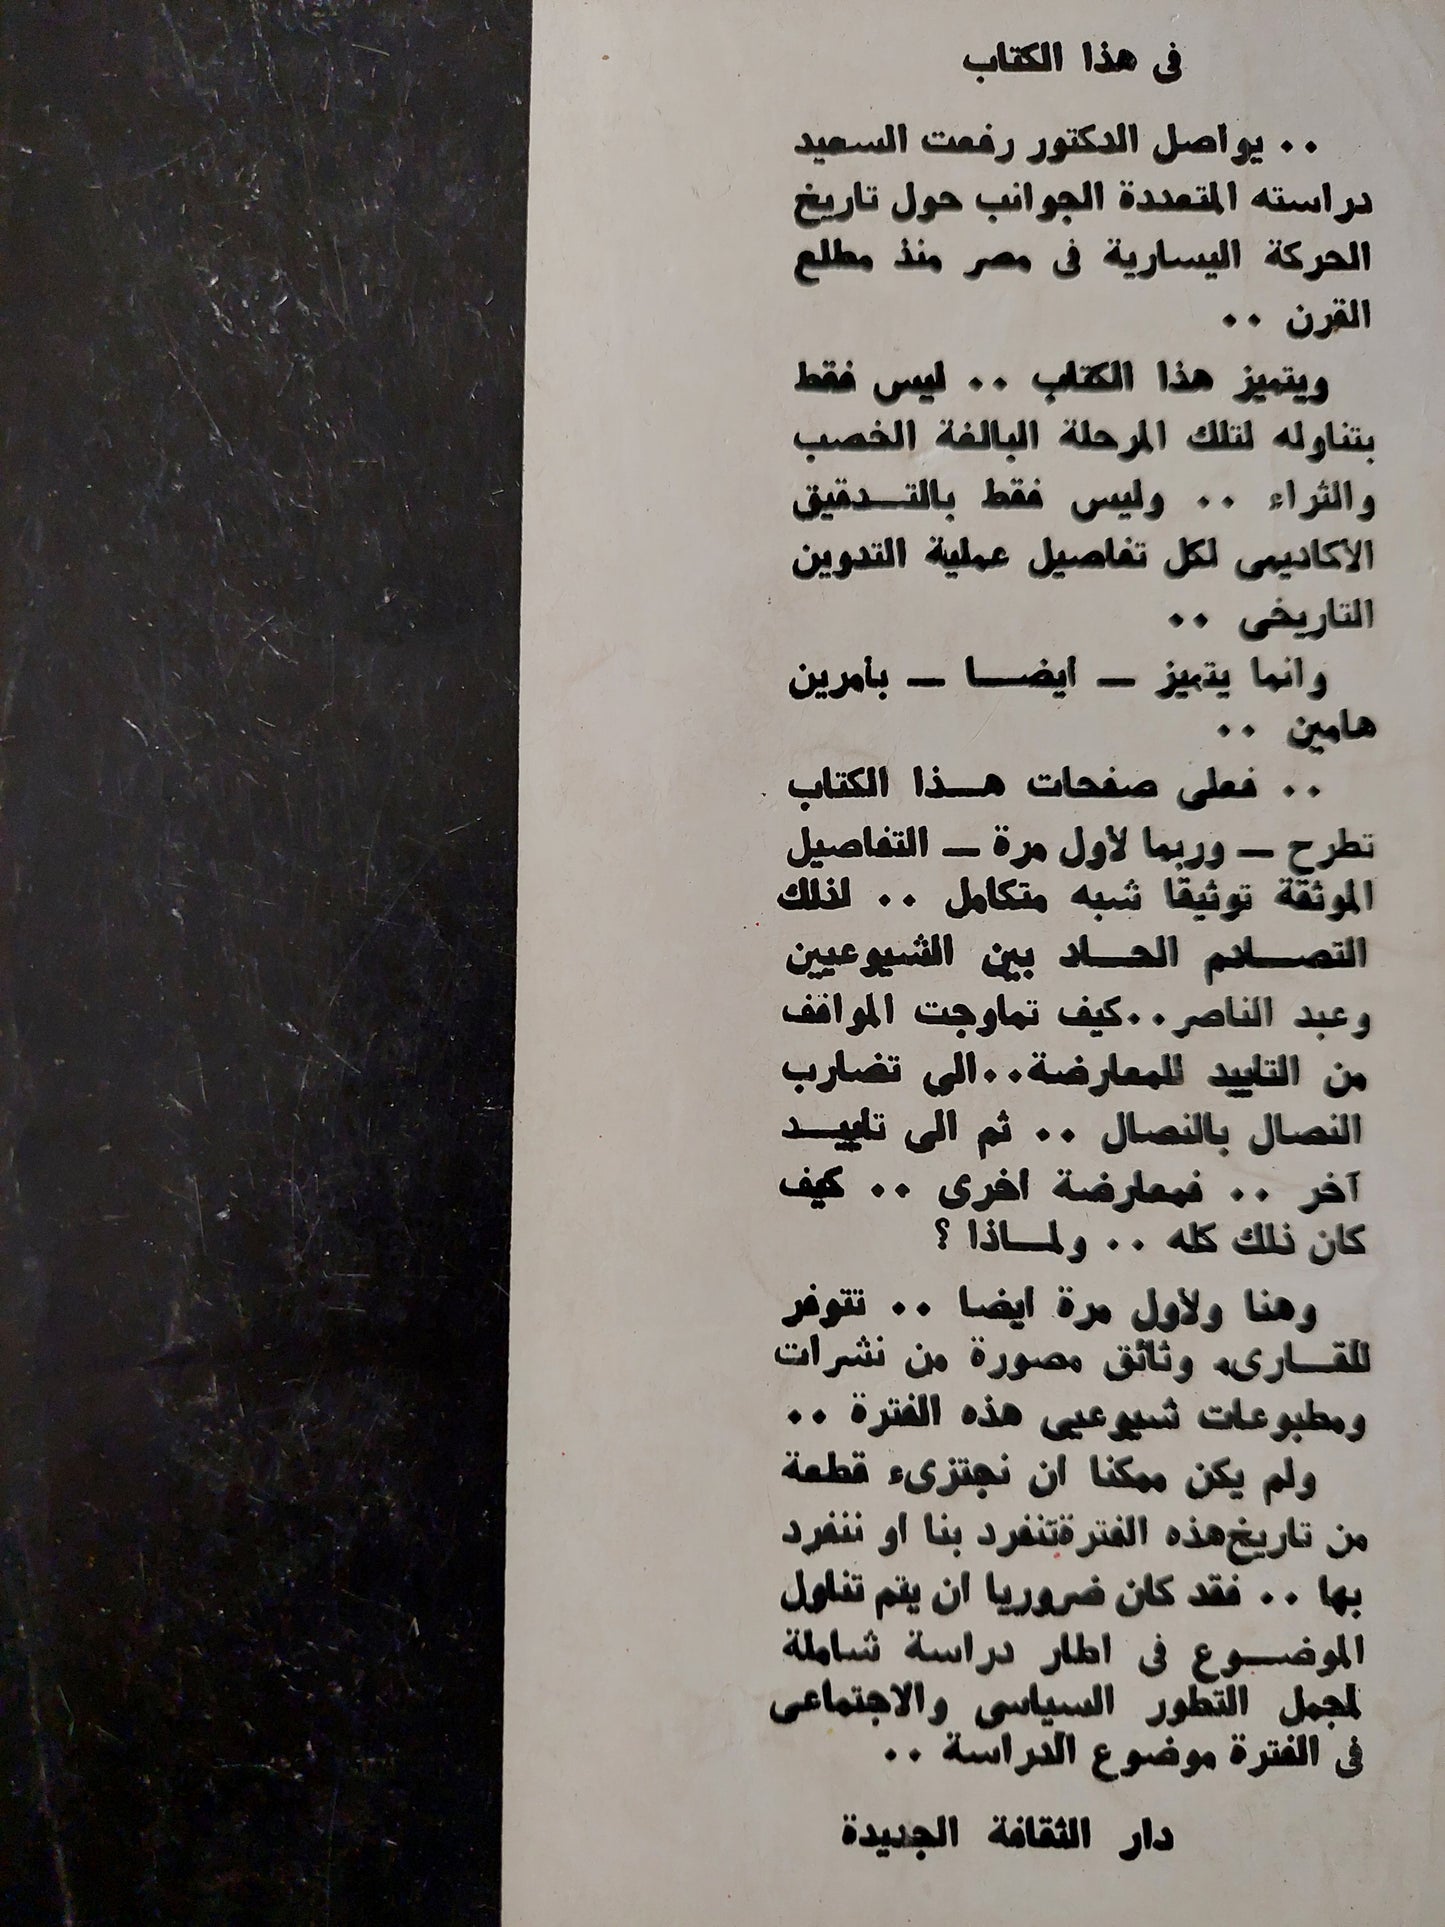 فى هذا الكتاب
.. يواصل الدكتور رفعت السعيد
دراسته المتعددة الجوانب حول تاريخ
الحركة اليسارية فى مصر منذ مطلع
القرن ..
ويتميز هذا الكتاب .. ليس فقط
بتناوله لتلك المرحلة البالغة الخصب
والثراء .. وليس فقط بالتـــدقيق
الاكاديمى لكل تفاصيل عملية التدوين
التاريخى ..
وانما يتميز ــ ايضـــا ــ بأمرين
هامين ..
.. فعلى صفحات هـــذا الكتاب
تطرح ــ وربما لأول مرة ــ التفاصيل
الموثقة توثيقا شبه متكامل .. لذلك
التصـــادم الحـــاد بين الشيوعيين
وعبد الناصر..كيف تماوجت المواقف
من التاييد للمعارضة..الى تضارب
النصال بالنصال .. ثم الى تاييـــد
آخر .. فمعارضة اخرى .. كيف
كان ذلك كله .. ولمـــاذا ؟
وهنا ولأول مرة ايضا .. تتوفر
للقـــارىء وثائق مصورة من نشرات
ومطبوعات شيوعيى هذه الفترة ..
ولم يكن ممكنا ان نجتزىء قطعة
من تاريخ هذه الفترة تنفرد بنا او ننفرد
بها .. فقد كان ضروريا ان يتم تناول
الموضـــوع فى اطار دراسة شاملة
لمجمل التطور السياسى والاجتماعى
فى الفترة موضوع الدراسة ..
دار الثقافة الجديدة